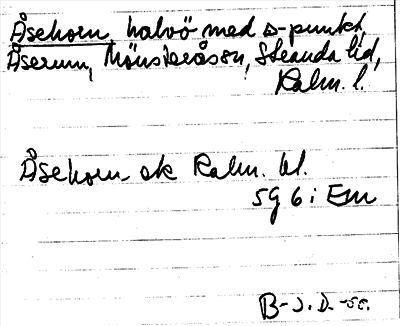 Åsehorn, halvö med △-punkt,
Åserum, Mönsterås sn, Stranda hd,
Kalm. l.
Åsehorn ek Kalm. bl.
5G 6 i Em
B-J. D. -56.